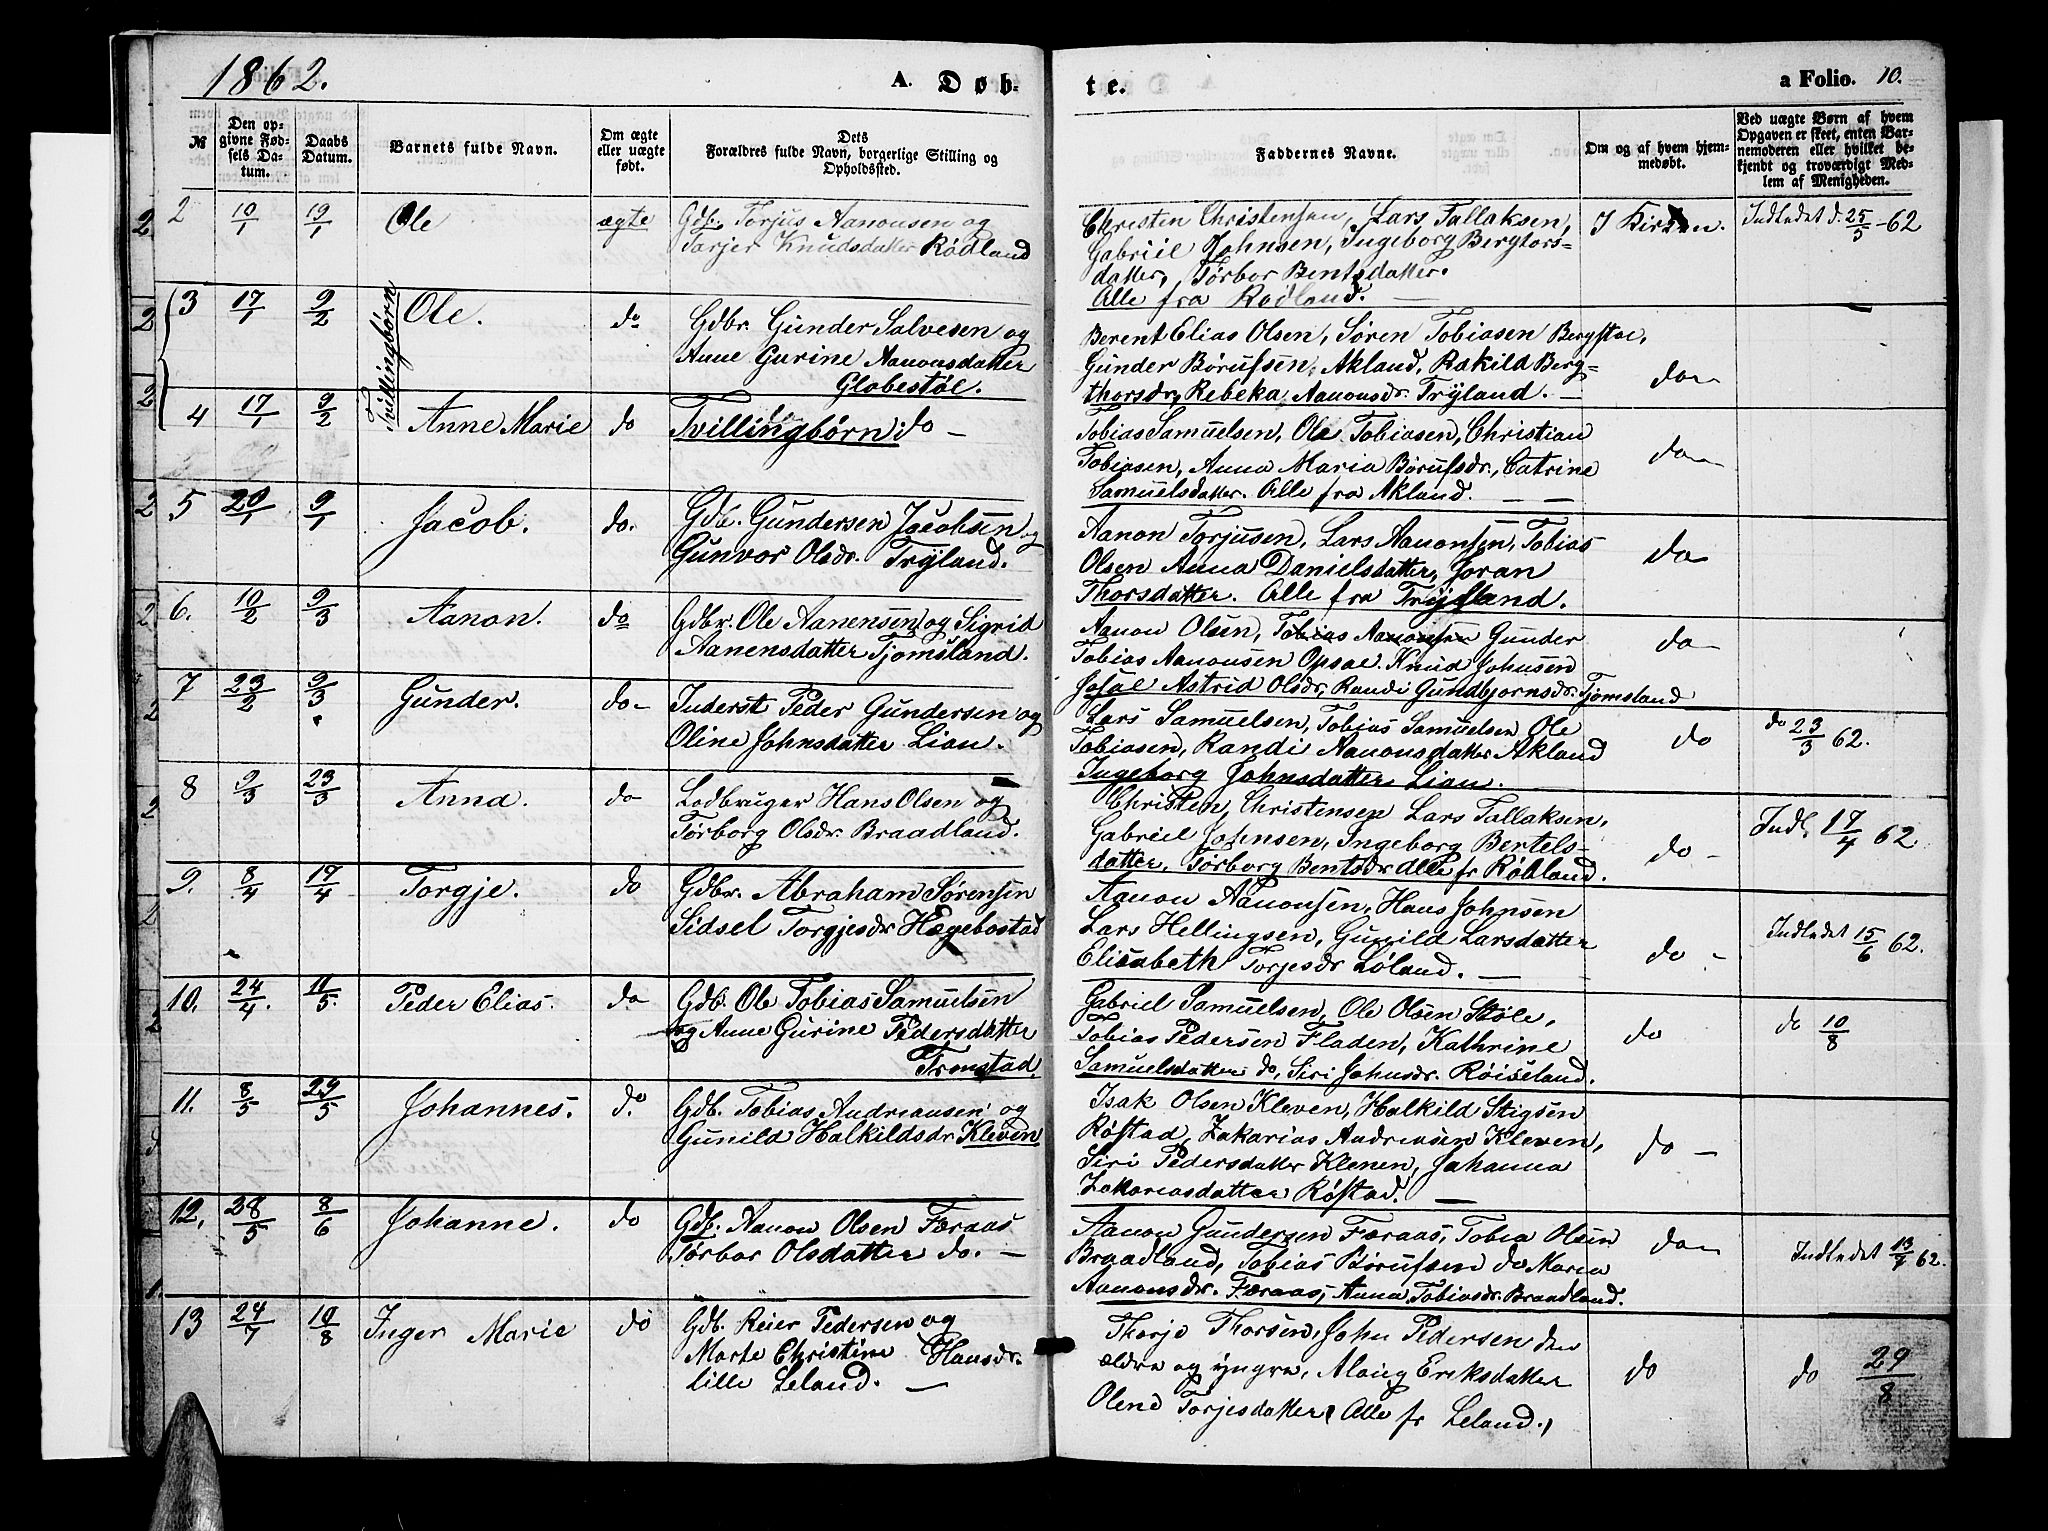 1862. A. Døb-
te. a Folio. 10.
№ Den opgivne Fødsels Datum. Daabs Datum. Barnets fulde Navn. Om ægte eller uægte født. Dets Forældres fulde Navn, borgerlige Stilling og Opholdssted. Faddernes Navne. Om og af hvem hjemmedøbt. Ved uægte Børn af hvem Opgaven er skeet, enten Barnemoderen eller hvilket bekjendt og troværdigt Medlem af Menigheden.
2 10/1 19/1 Ole ægte Gdb. Torjus Aanonsen og
Tarjer Knudsdatter Rødland
Christen Christensen, Lars Tallaksen,
Gabriel Johnsen, Ingeborg Bergtors-
datter, Tørbor Bentsdatter.
Alle fra Rødland. —
I Kirken. Indledet d. 25/3 -62
Tvillingbørn
3 17/1 9/2 Ole. do Gdbr. Gunder Salvesen og
Anne Gurine Aanonsdatter
Globestøl.
Berent Elias Olsen, Søren Tobiasen Bergstøl,
Gunder Børufsen, Akland, Rakild Berg-
thorsdr, Rebeka Aanonsdr. Trÿland. —
do
4 17/1 9/2 Anne Marie do Tvillingbørn do —
Tobias Samuelsen, Ole Tobiasen, Christian
Tobiasen, Anna Maria Børufsdr., Catrine
Samuelsdatter. Alle fra Akland. — —
do
5 20/1 9/1 Jacob. do. Gdb. Gundersen Jacobsen og
Gunvor Olsdr. Trÿland.
Aanon Torjusen, Lars Aanonsen, Tobias
Olsen Anna Danielsdatter, Joran
Thorsdatter. Alle fra Trÿland.
do
6. 10/2 9/3 Aanon. do Gdbr. Ole Aanensen og Sigrid
Aanensdatter Tjomsland.
Aanon Olsen, Tobias Aanonsen Gunder
Tobias Aanonsen Opsal. Knud Johnsen
Josal Astrid Olsdr, Randi Gundbjornsdr. Tjomsland
do
7 23/2 9/3 Gunder. do Inderst Peder Gundersen og
Oline Johnsdatter Lian.
Lars Samuelsen, Tobias Samuelsen Ole
Tobiasen, Randi Aanonsdatter Akland
Ingeborg Johnsdatter Lian.
do do 23/3 62.
8 9/3 23/3 Anna. do Lodbruger Hans Olsen og
Tørborg Olsdr. Braadland.
Christen Christensen Lars Tallaksen,
Gabriel Johnsen, Ingeborg Bertels-
datter, Tørborg Bentsdr Alle fr Rødland.
do Indl. 17/4 62
9. 8/4 17/4 Torgje. do Gdbr. Abraham Sørensen
Sidsel Torgjesdr Hægebostad
Aanon Aanonsen, Hans Johnsen
Lars Hellingsen, Gunild Larsdatter
Elisabeth Torjesdr Løland. —
do Indledet 15/6 62.
10. 24/4. 11/5. Peder Elias. do Gdb. Ole Tobias Samuelsen
og Anne Gurine Pedersdatter
Tronstad.
Gabriel Samuelsen, Ole Olsen Støle,
Tobias Pedersen Fladen, Kathrine
Samuelsdatter do, Siri Johnsdr. Røiseland.
do do 10/8
11. 8/5 29/5 Johannes. do Gdb. Tobias Andreausen og
Gunild Halkildsdr Kleven
Isak Olsen Kleven, Halkild Stigsen
Røstad, Zakarias Andreasen Kleven,
Siri Pedersdatter Kleven, Johanna
Zakariasdatter Røstad. —
do
12. 28/5 8/6 Johanne. do Gdb. Aanon Olsen Færaas
Tørbor Olsdatter do. —
Aanon Gundersen Færaas, Tobia Olsen
Braadland, Tobias Børufsen do Maria
Aanonsdr. Færaas, Anna Tobiasdr. Braadland.
do Indledet 13/7 62.
13 24/7 10/8 Inger Marie do Gdb. Reier Pedersen og
Marte Christine Hansdr.
Lille Leland. —
Thorje Thorsen, John Pedersen den
ældre og yngre, Alaug Eriksdatter
Olene Torjesdatter Alle fr Leland.
do do 29/8